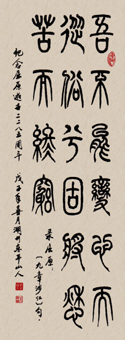 吾不能變心而
從俗兮固將愁
苦而終窮
录屈原
《九章涉江》句
纪念屈原逝世二二八五周年
戊子年 月湖州 山人